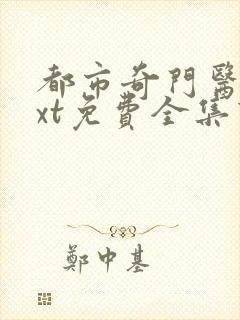 都市奇門醫
xt免費全集
鄭中基